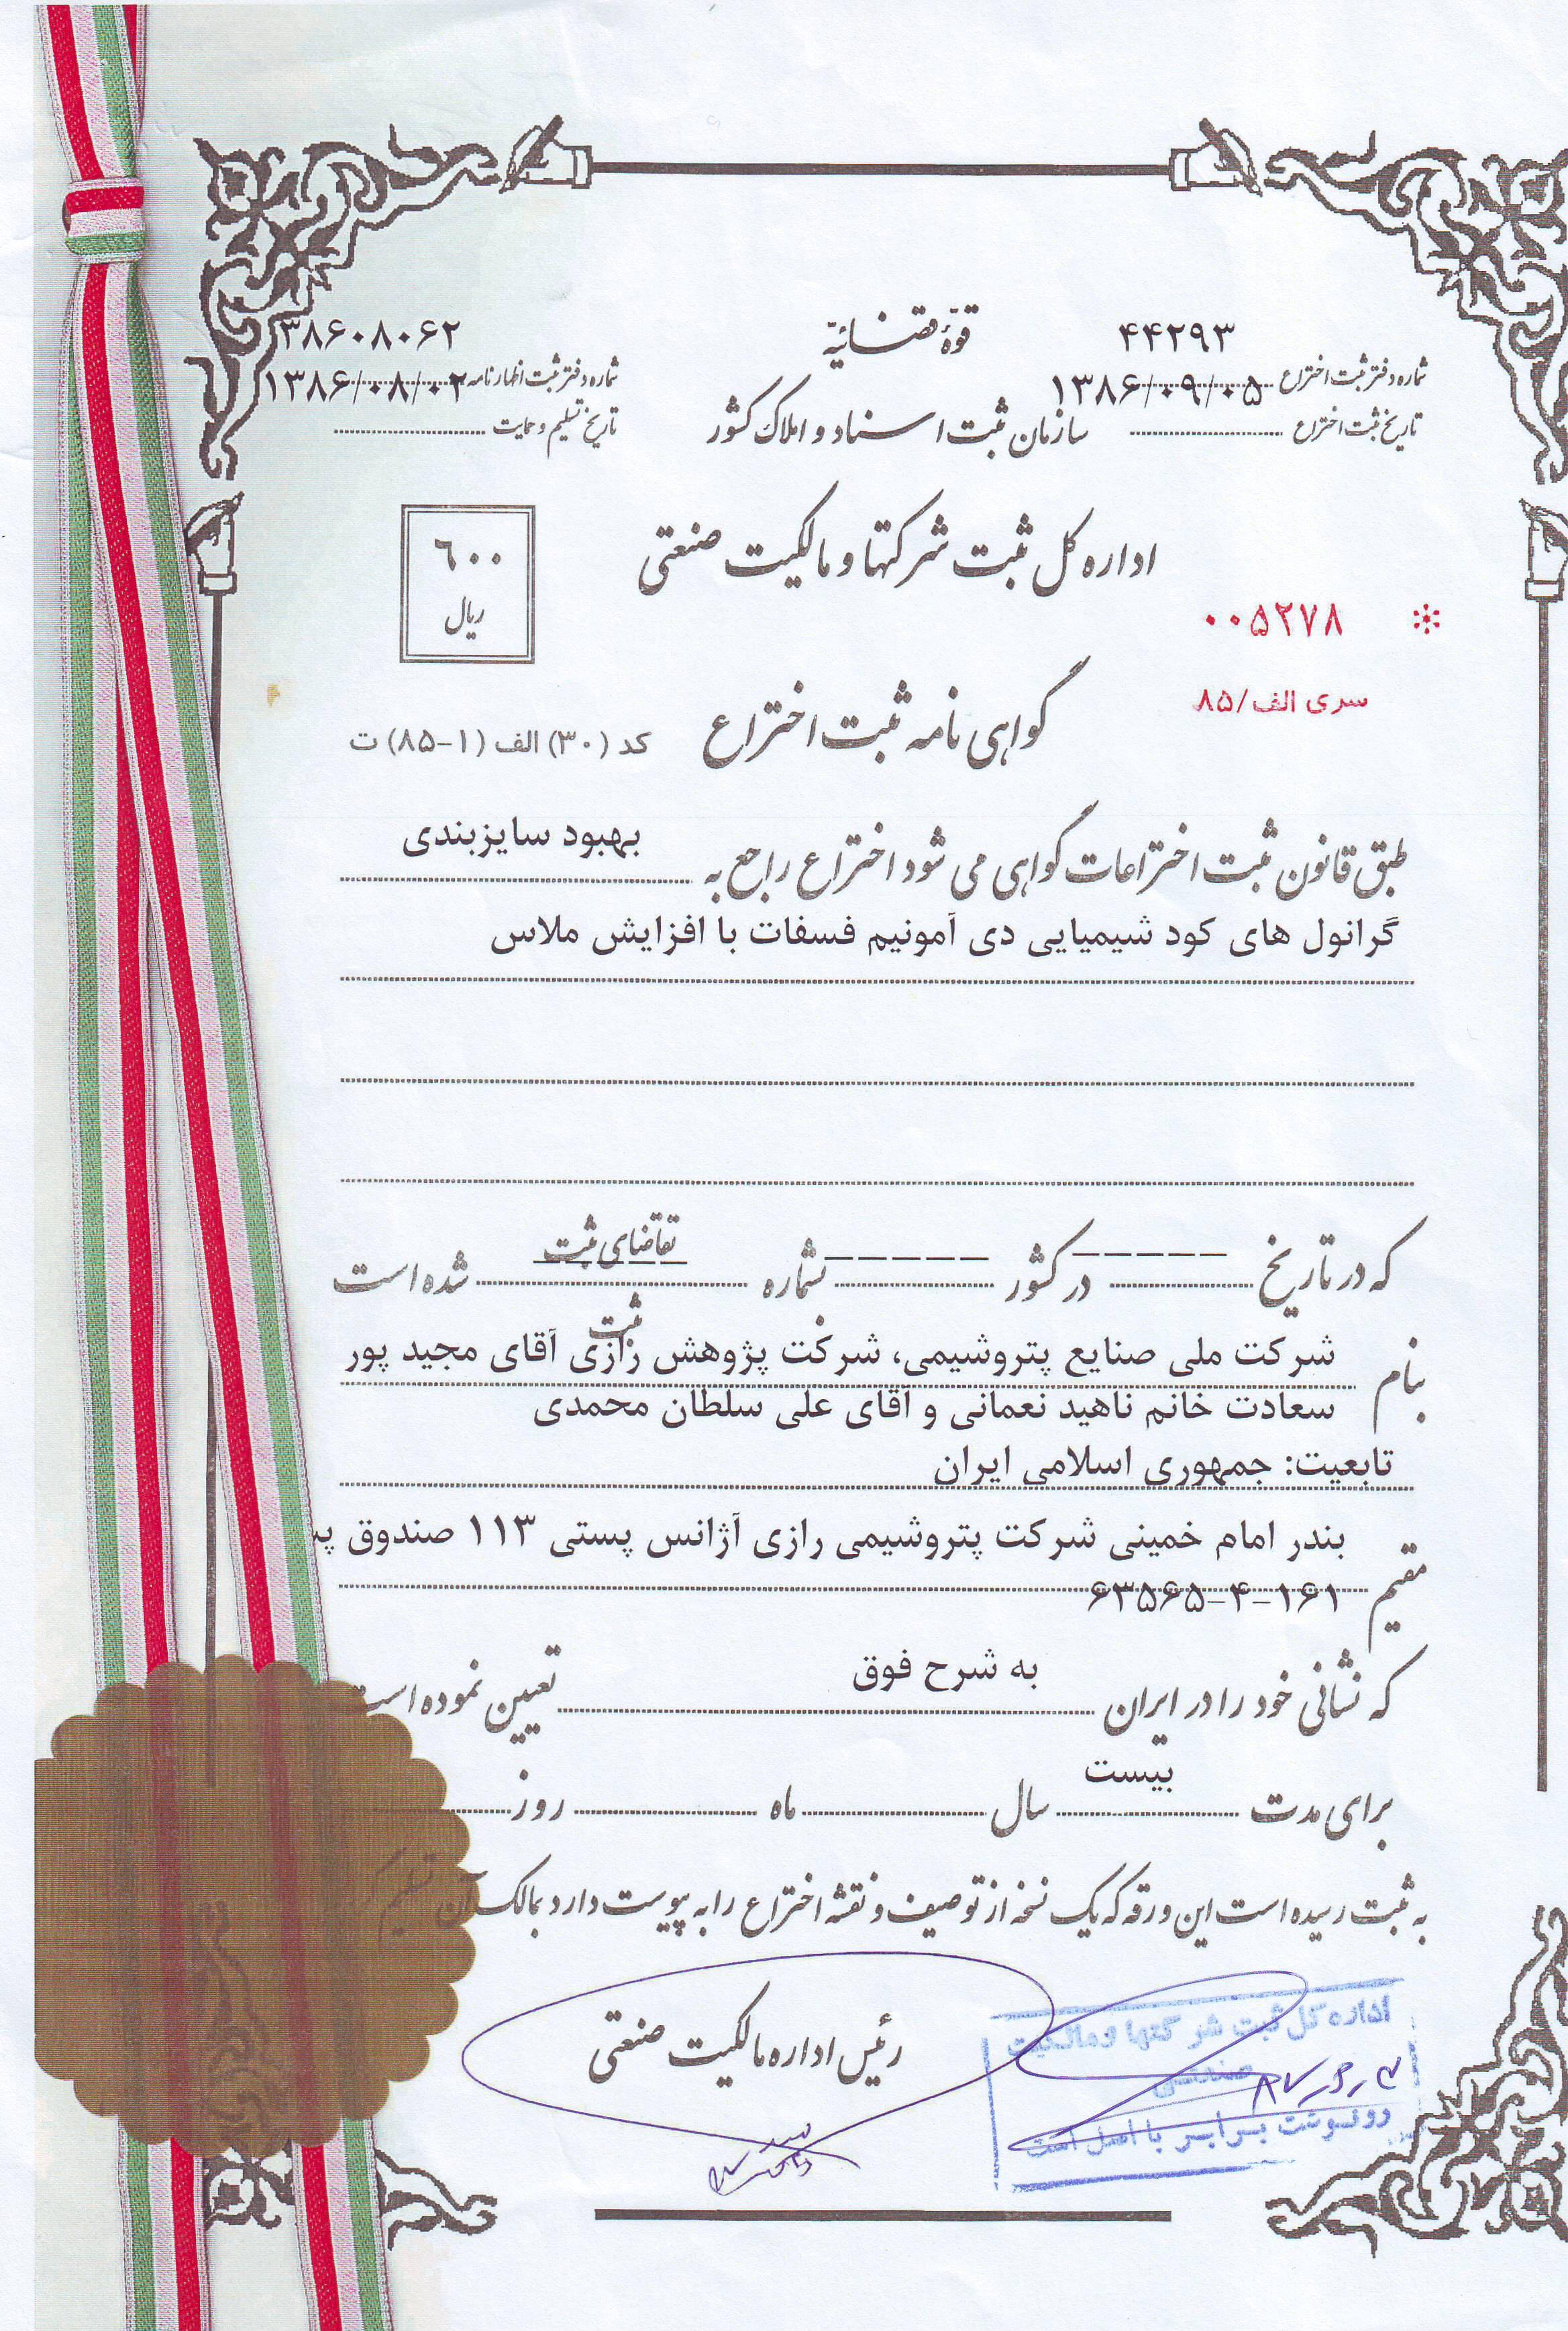 قوهٔ قضائیه
۴۴۲۹۳
شماره دفتر ثبت اختراع
۱۳۸۶/۰۹/۰۵
تاریخ ثبت اختراع
۳۸۶۰۸۰۶۲
شماره دفتر ثبت اظهارنامه
۱۳۸۶/۰۸/۰۲
تاریخ تسلیم و حمایت
سازمان ثبت اسناد و املاک کشور
اداره کل ثبت شرکتها و مالکیت صنعتی
۶۰۰
ریال
۰۰۵۲۷۸
سری الف/۸۵
گواهی نامه ثبت اختراع
کد (۳۰) الف (۱-۸۵) ت
طبق قانون ثبت اختراعات گواهی می شود اختراع راجع به بهبود سایزبندی
گرانول های کود شیمیایی دی آمونیم فسفات با افزایش ملاس
که در تاریخ ----- در کشور ------ بشماره تقاضای ثبت شده است
ثبت
بنام شرکت ملی صنایع پتروشیمی، شرکت پژوهش رازی آقای مجید پور
سعادت خانم ناهید نعمانی و آقای علی سلطان محمدی
تابعیت: جمهوری اسلامی ایران
مقیم بندر امام خمینی شرکت پتروشیمی رازی آژانس پستی ۱۱۳ صندوق
۶۳۵۶۵-۴-۱۶۱
که نشانی خود را در ایران به شرح فوق تعیین نموده است
برای مدت بیست سال ماه روز
به ثبت رسیده است این ورقه که یک نسخه از توصیف و نقشه اختراع را به پیوست دارد بمالک آن تسلیم
رئیس اداره مالکیت صنعتی
اداره کل ثبت شرکتها و مالکیت
صنعتی
رونوشت برابر با اصل است